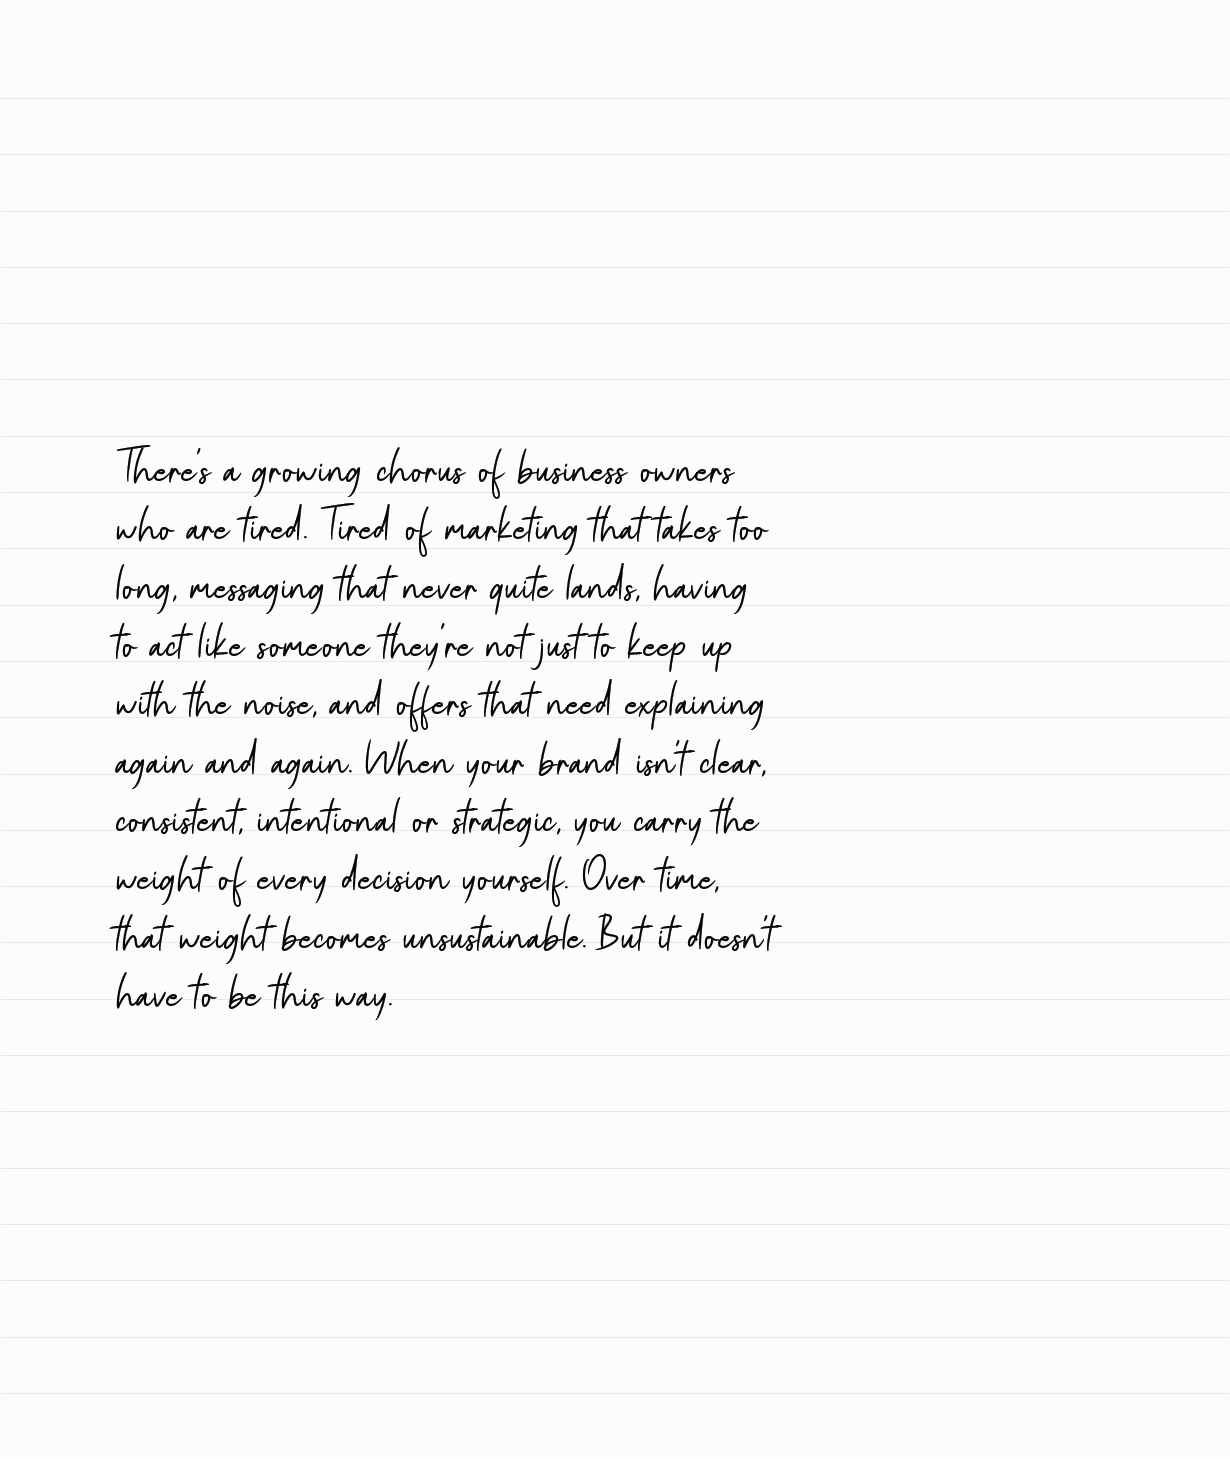 There's a growing chorus of business owners
who are tired. Tired of marketing that takes too
long, messaging that never quite lands, having
to act like someone they're not just to keep up
with the noise, and offers that need explaining
again and again. When your brand isn't clear,
consistent, intentional or strategic, you carry the
weight of every decision yourself. Over time,
that weight becomes unsustainable. But it doesn't
have to be this way.